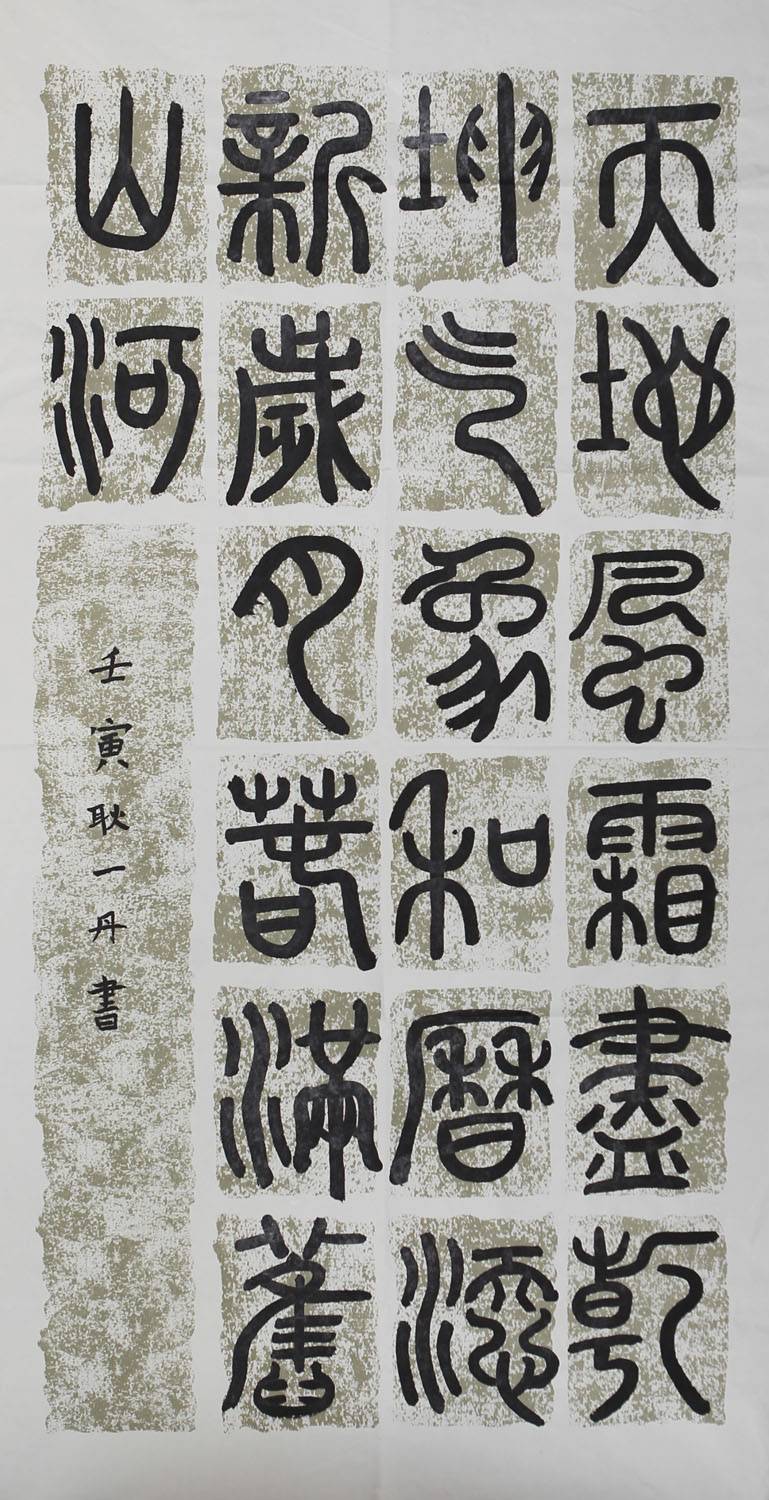 天地風霜盡乾
坤气象和曆添
新歲月春滿舊
山河
壬寅耿一丹書